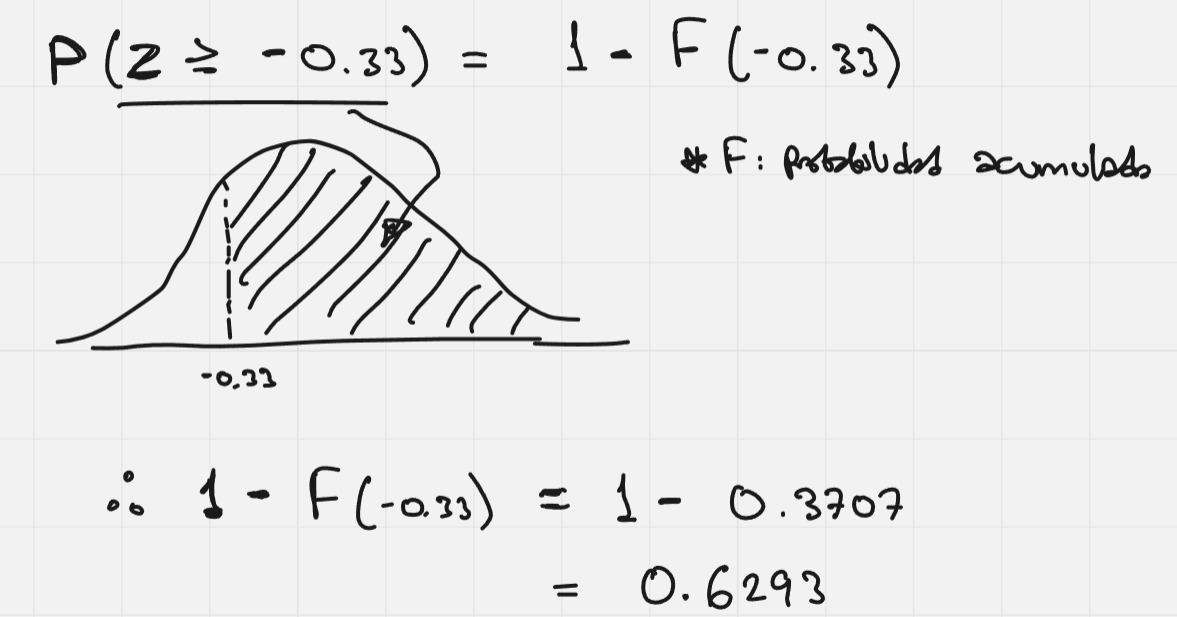 P(Z ≥ -0.33) = 1 - F(-0.33)
* F: Probabilidad acumulada
-0.33
∴ 1 - F(-0.33) = 1 - 0.3707
= 0.6293